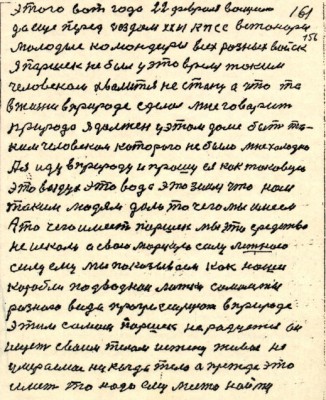 этого вот года 22 февраля 161
да еще перед съездом XXVI КПСС 156
молодые командиры всех разных войск
Я Паршек не был у это время таким
человеком хвалится не стану а что то
в жизни в природе сделал мне говорит
природа я должен у этом доме быть та-
ким человеком которого не было мне холодно
А я иду в природу и прошу ея как таковую
это воздух это вода это земля что нам
таким людям дали то чего мы имеем
А то чего имеет Паршек мы это средство
не искали а свою силу
силу ему мы показываем как наши
корабли подводная лодка самолеты
разного вида в природе
этим самым Паршек не радуется он
ищет своим телом истину живая не
умираемая никогда тело а прежде это
иметь то надо ему место найти